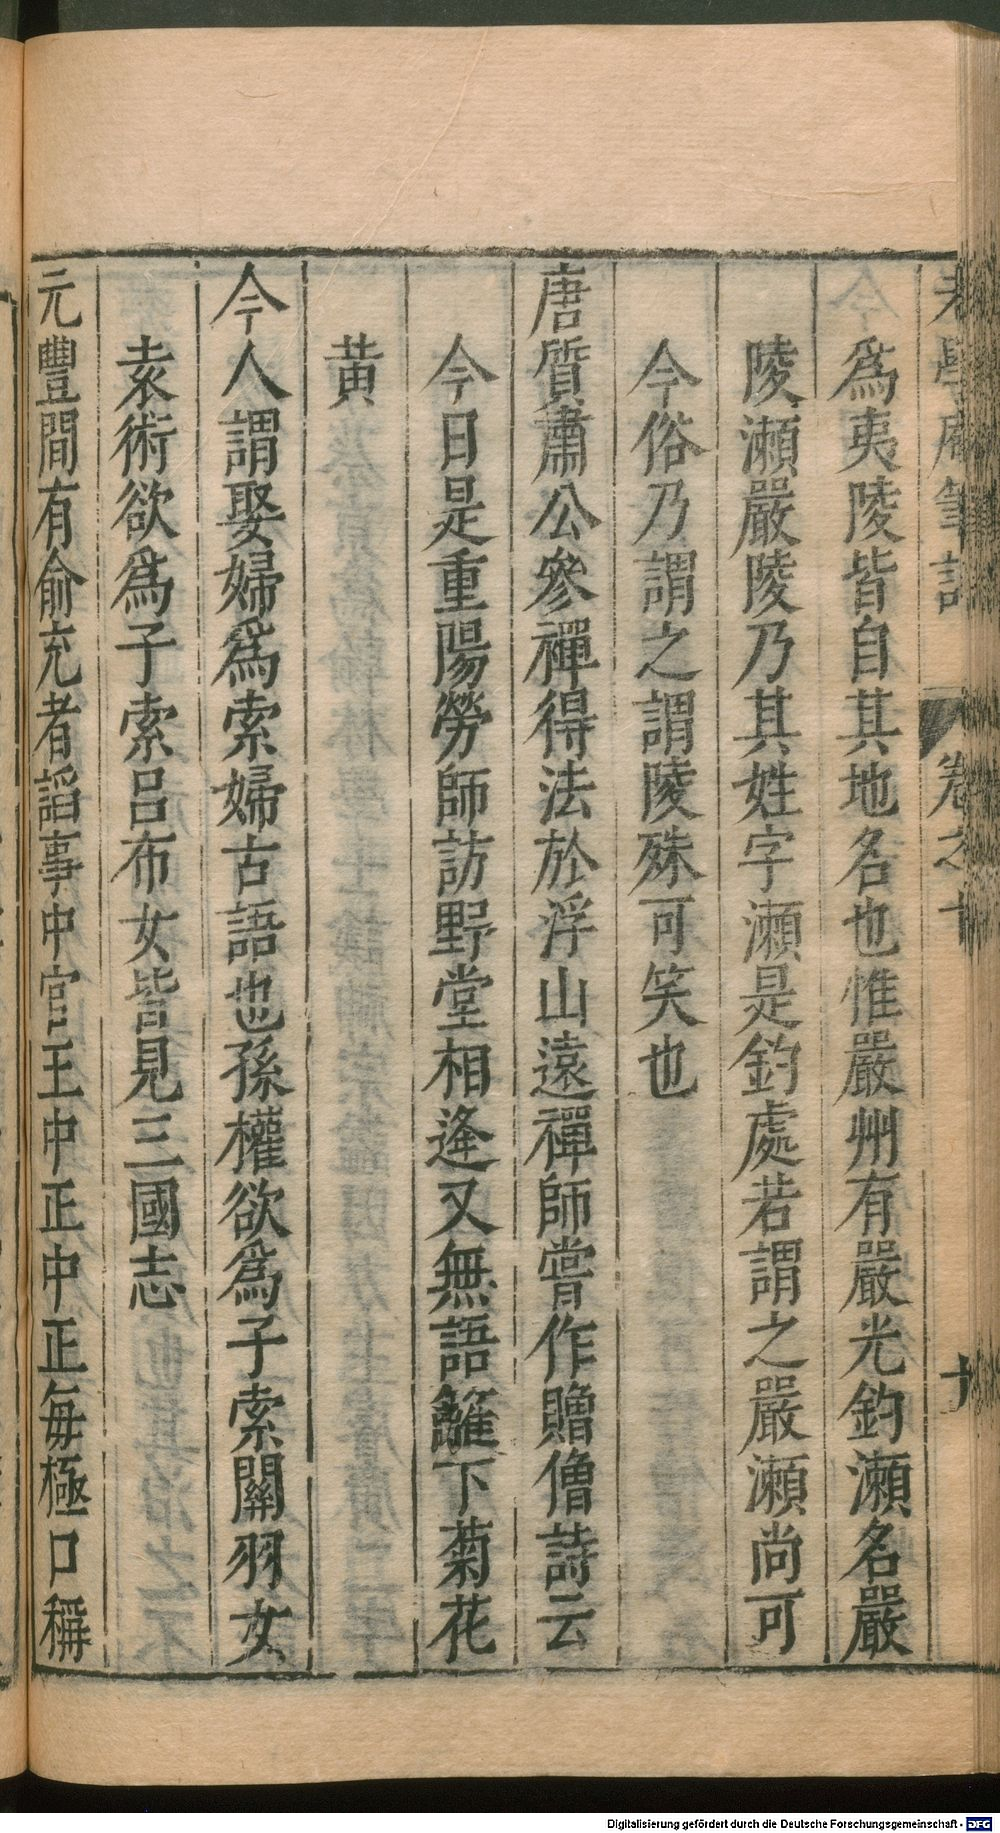 老學庵筆記 卷之十
爲夷陵皆自其地名也惟嚴州有嚴光釣瀬名嚴
陵瀬嚴陵乃其姓字瀬是釣處若謂之嚴瀬尚可
今俗乃謂之謂陵殊可笑也
唐質肅公參禪得法於浮山遠禪師嘗作贈僧詩云
今日是重陽勞師訪野堂相逢又無語籬下菊花
黄
今人謂娶婦爲索婦古語也孫權欲爲子索關羽女
袁術欲爲子索吕布女皆見三國志
元豐間有俞充者謟事中官王中正中正每極口稱
Digitalisierung gefördert durch die Deutsche Forschungsgemeinschaft - DFG